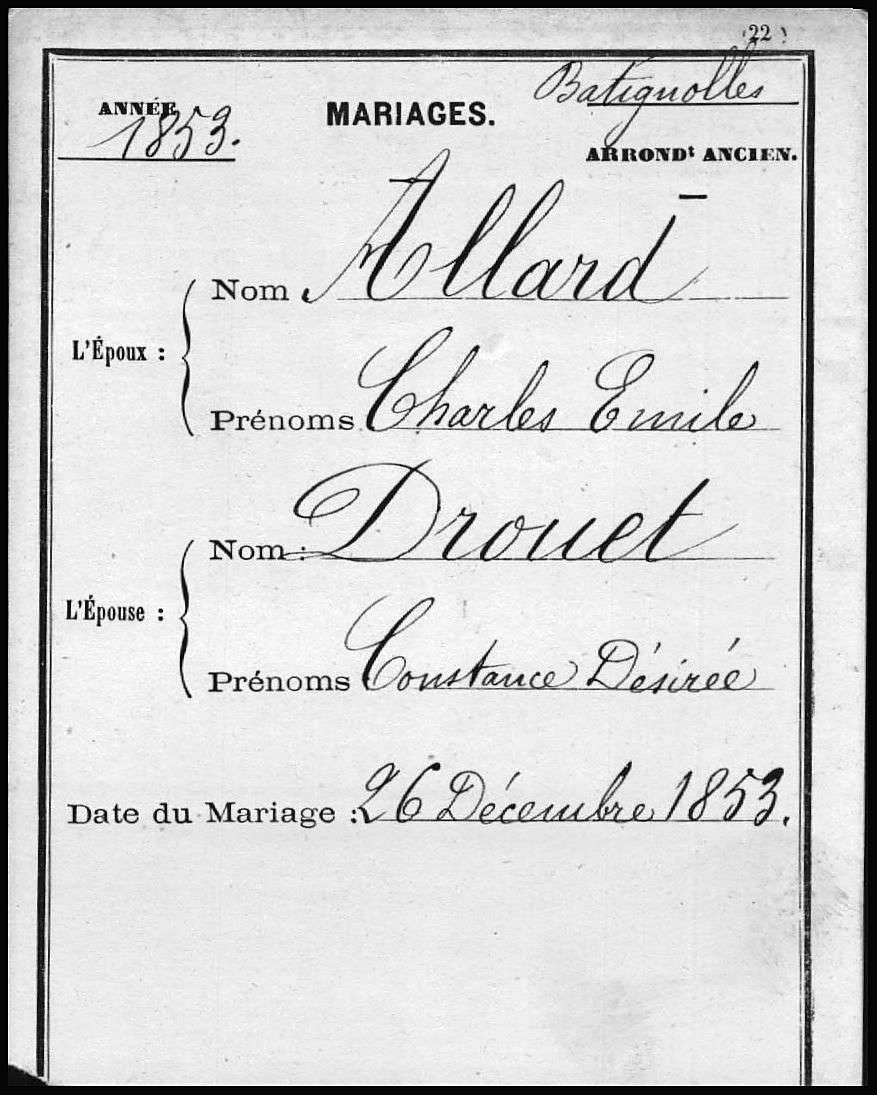 (22)
ANNÉE
1853.
MARIAGES.
Batignolles
ARRONDt ANCIEN.
L'Époux :
Nom : Allard
Prénoms Charles Emile
L'Épouse :
Nom : Drouet
Prénoms Constance Désirée
Date du Mariage : 26 Décembre 1853.